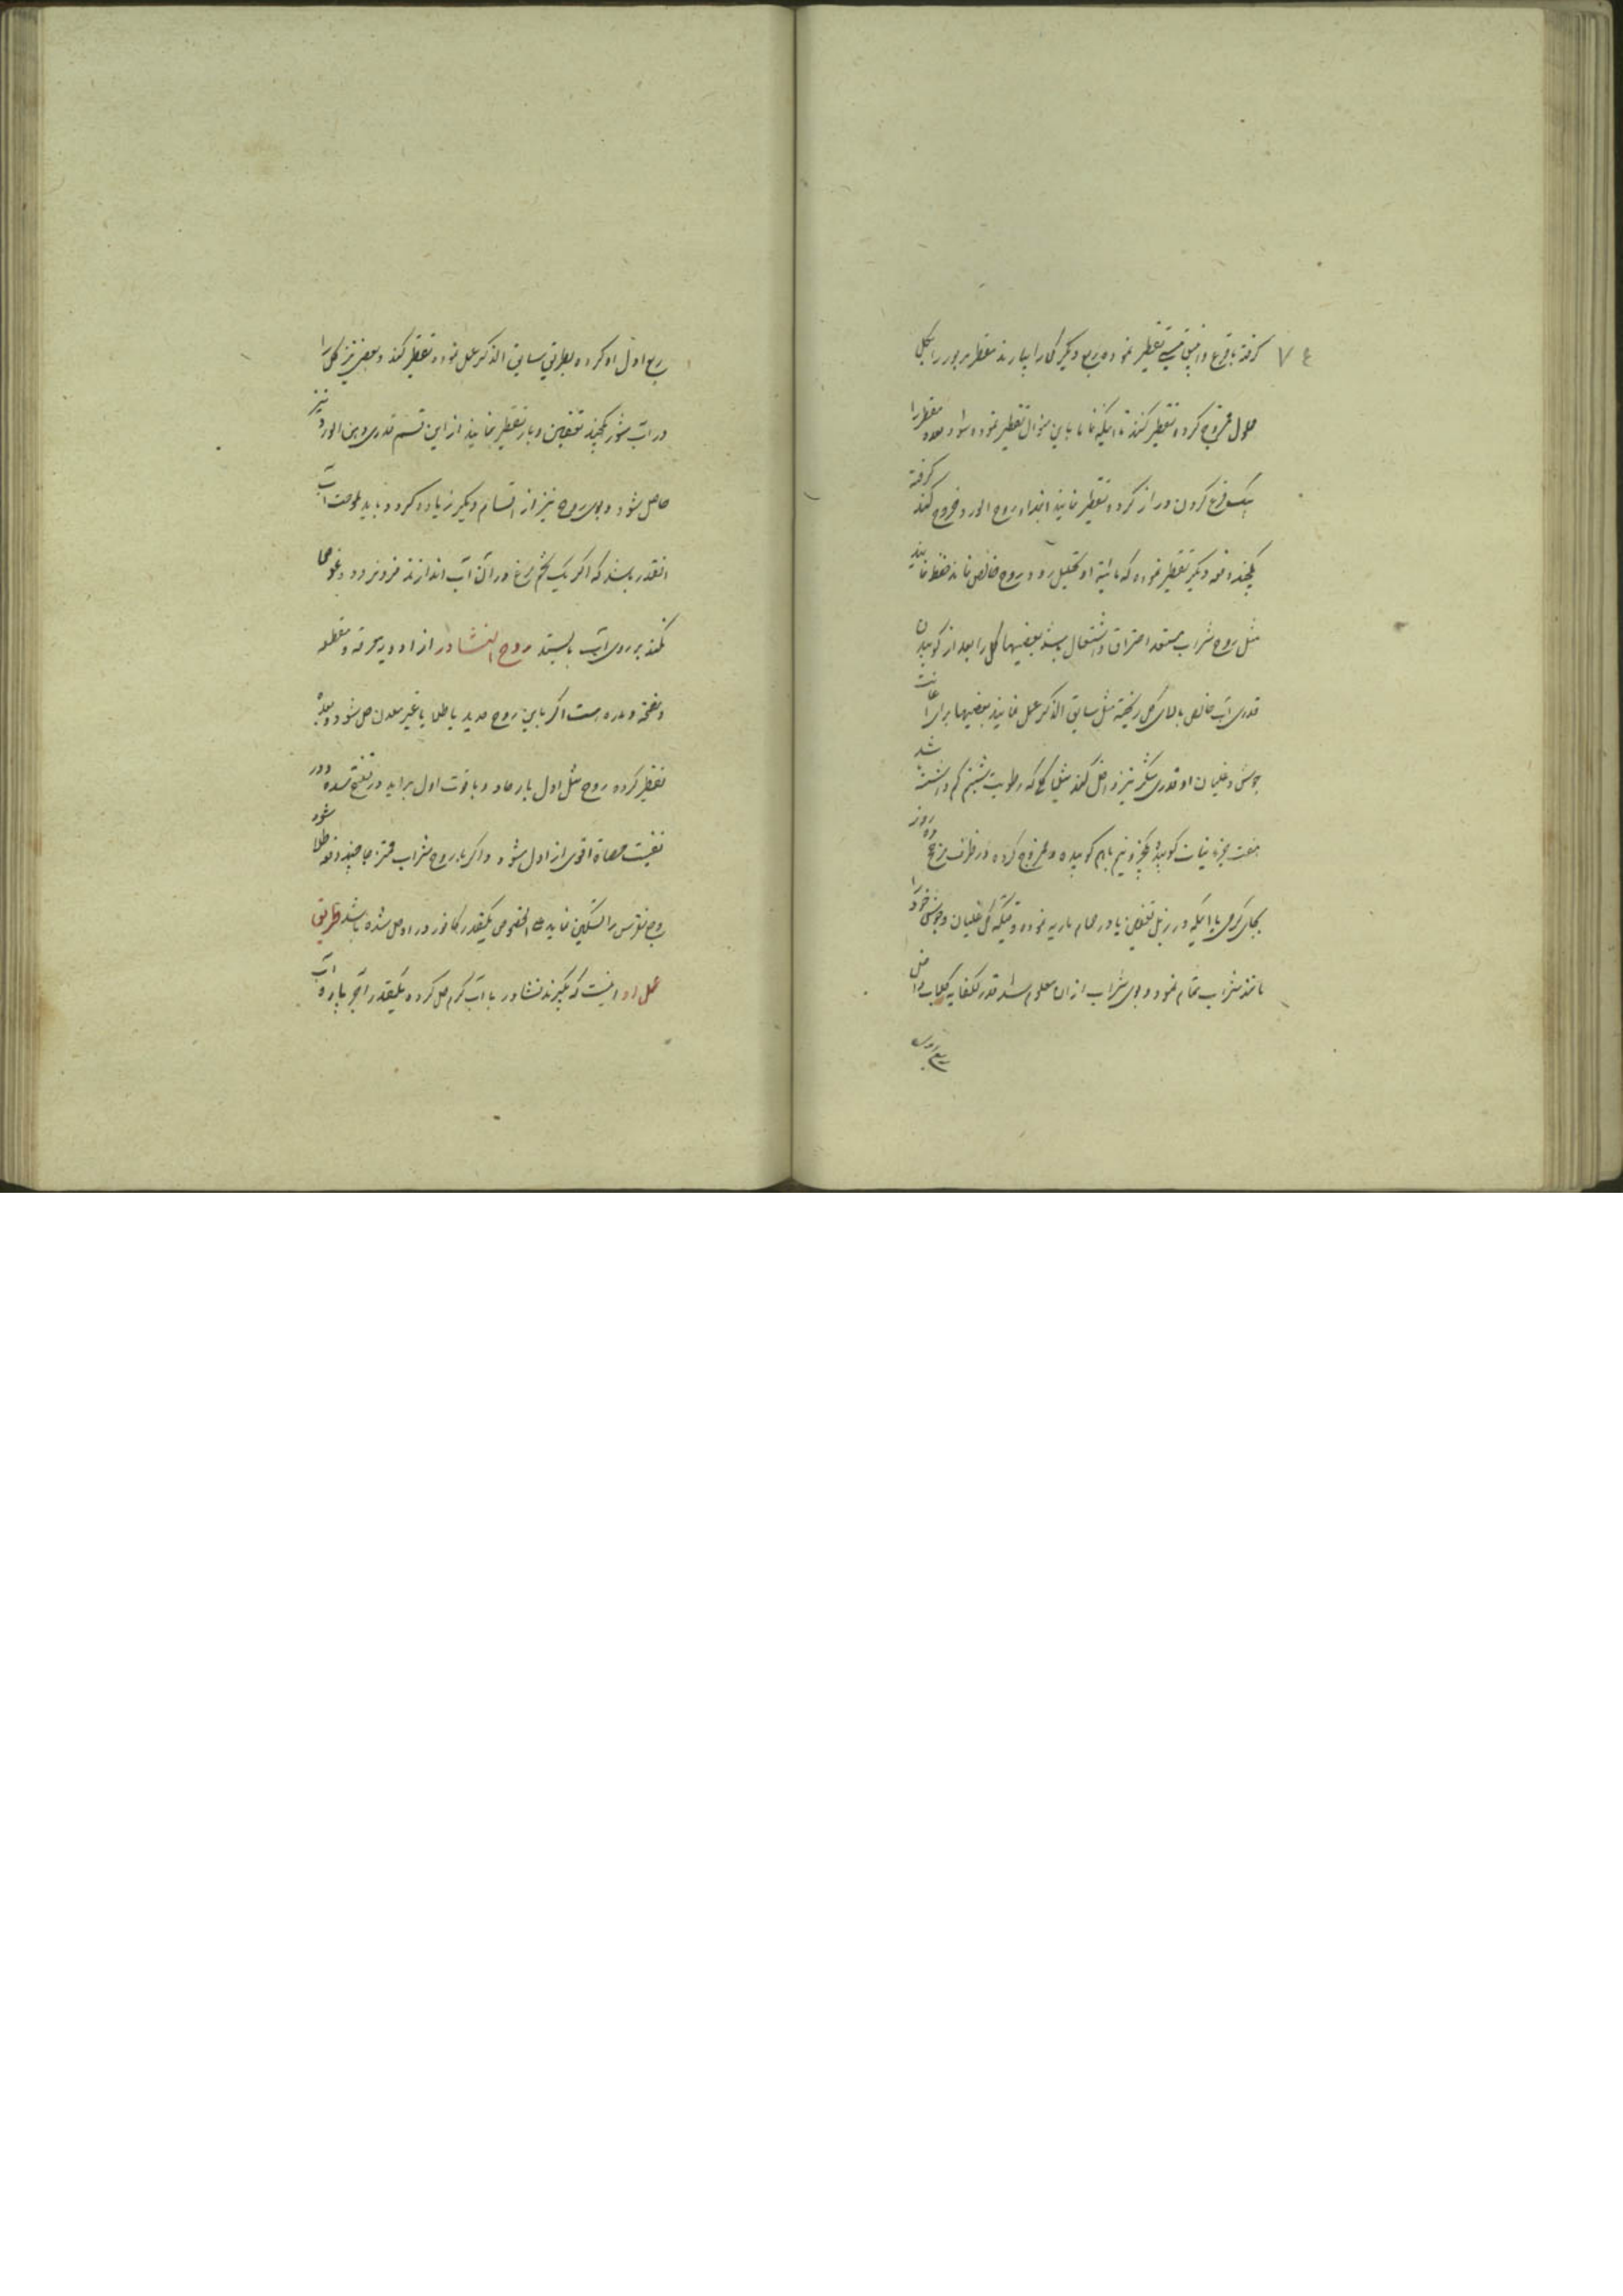 ٧٤
گرفته با قرع و انبیق مسی تقطیر نموده ربع دیگر گل را بیارند مقطر مزبور را بگل
ممزوج کرده تقطیر کنند تا اینکه تماما باین منوال تقطیر نموده شود مقطر را
یک قرع گردن دراز کرده تقطیر نمایند ابتداء روح الورد خروج کند گرفته
یکچند دفعه دیگر تقطیر نموده که مائیة او بتحلیل رود روح خالص بماند حفظ نمایند
مثل روح شراب مستعد احتراق و اشتعال باشد بعضیها گل را بعد از کوبیدن
قدری آب خالص بالای گل ریخته مثل سابق الذکر عمل نمایند بعضیها برای اعانت
جوش و غلیان او قدری شکر نیز داخل کنند مثلا گلی که رطوبت شبنم کم داشته باشد
هفت جزء نبات کوبیده یکجزو نیم باهم کوبیده و ممزوج کرده در ظرف ده روز
بجای گرمی یا اینکه در زبل تعفین یا در حمام ماریه نموده وقتیکه گل غلیان و جوش خود را
مانند شراب تمام نمود و بوی شراب از ان معلوم شد قدر کفایه گلاب داخل
ربع اول او کرده بطریق سابق الذکر عمل نموده تقطیر کنند و بعضی نیز گل را
در آب شور یکچند تعفین و بار تقطیر نمایند از این قسم قدری دهن الورد نیز
حاصل شود و بوی روح نیز از اقسام دیگر زیاده گردد و باید ملوحت آب
انقدر باشد که اگر یک تخم مرغ در آن آب اندازند فرو نرود و غوص
نکند بر روی آب بایستد روح النشادر از ادویه محرقه و مقطعه
و مفتحه و مدره است اگر باین روح حدید یا طلا یا غیر معدن حل شود و بعده
تقطیر کرده روح مثل اول بار حاد و باقوت اول براید در تفتیح سده و در
تفتیت حصاة اقوی از اول شود و اگر با روح شراب ممتزجا چند دفعه طلا شود
وجع نقرس را تسکین نماید علی الخصوص یکقدر کافور در او حل شده باشد طریق
عمل او اینست که بگیرند نشادر با آب گرم حل کرده یکقدر آجر پاره آب